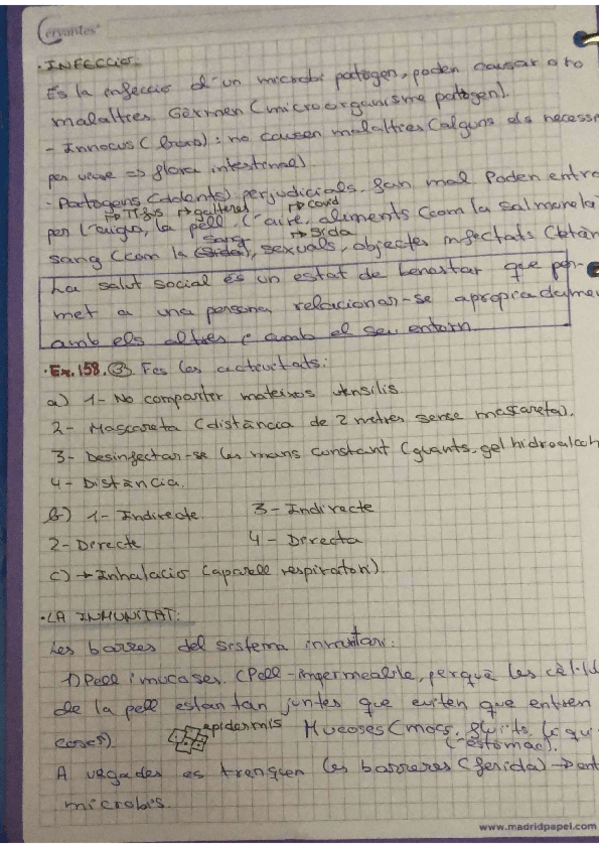 Cervantes
· INFECCIO.
És la infecció d'un microbi patogen, poden causar o no
malalties. Germen (microorganisme patogen).
- Innocus (bons): no causen malalties (alguns els necess
per viure => flora intestinal)
- Patogens (dolents) perjudicials. fan mal. Poden entra
↳ Tifus ↳ galteres ↳ covid
per l'aigua, la pell, l'aire, aliments (com la salmonela
sang ↳ sida
sang (com la (sida), sexuals, objectes infectats (tètan
La salut social és un estat de benestar que per-
met a una persona relacionar-se apropiadamen
amb els altres i amb el seu entorn
· Ex. 158. ③ Fes les activitats:
a) 1- No compartir mateixos utensilis
2- Mascareta (distància de 2 metres sense mascareta).
3- Desinfectar-se les mans constant (guants, gel hidroalcoh
4- Distància.
b) 1- Indirecte. 3- Indirecte
2- Directe 4- Directa
c) → Inhalacio (aparell respiratori).
· LA INMUNITAT:
Les barres del sistema inmunitari:
1) Pell i mucases. (Pell-impermeable, perquè les cèl·lul
de la pell estan tan juntes que eviten que entren
coses) epidermis Mucoses (mocs, , qui
l'estomac).
A vegades es trenquen les barreres (ferida) → ent
microbis.
www.madridpapel.com